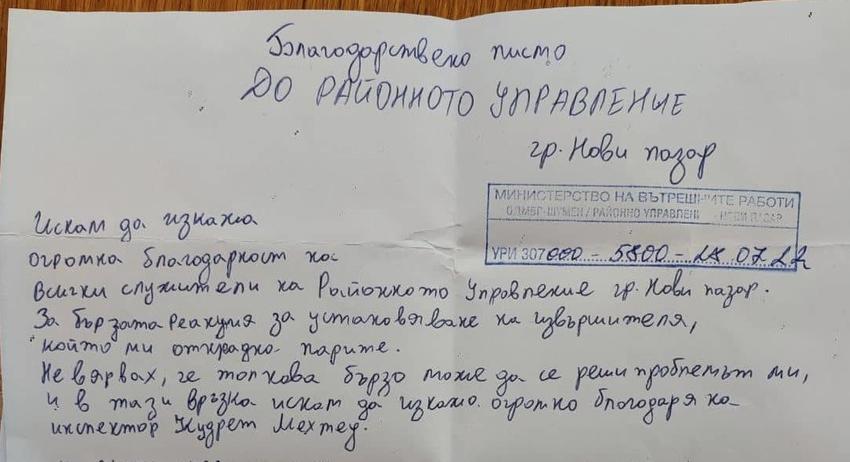 Благодарствено писмо
ДО РАЙОННОТО УПРАВЛЕНИЕ
гр. Нови пазар
МИНИСТЕРСТВО НА ВЪТРЕШНИТЕ РАБОТИ
ОДМВР-ШУМЕН / РАЙОННО УПРАВЛЕНИ НОВИ ПАЗАР
УРИ 307000 - 5800 - 07
Искам да изкажа
огромна благодарност на
всички служители на Районното Управление гр. Нови пазар.
За бързата реакция за установяване на извършителя,
който ми открадна парите.
Не вярвах, че толкова бързо може да се реши проблемът ми,
и в тази връзка искам да изкажа огромно благодаря на
инспектор Кудрет Мехмед.